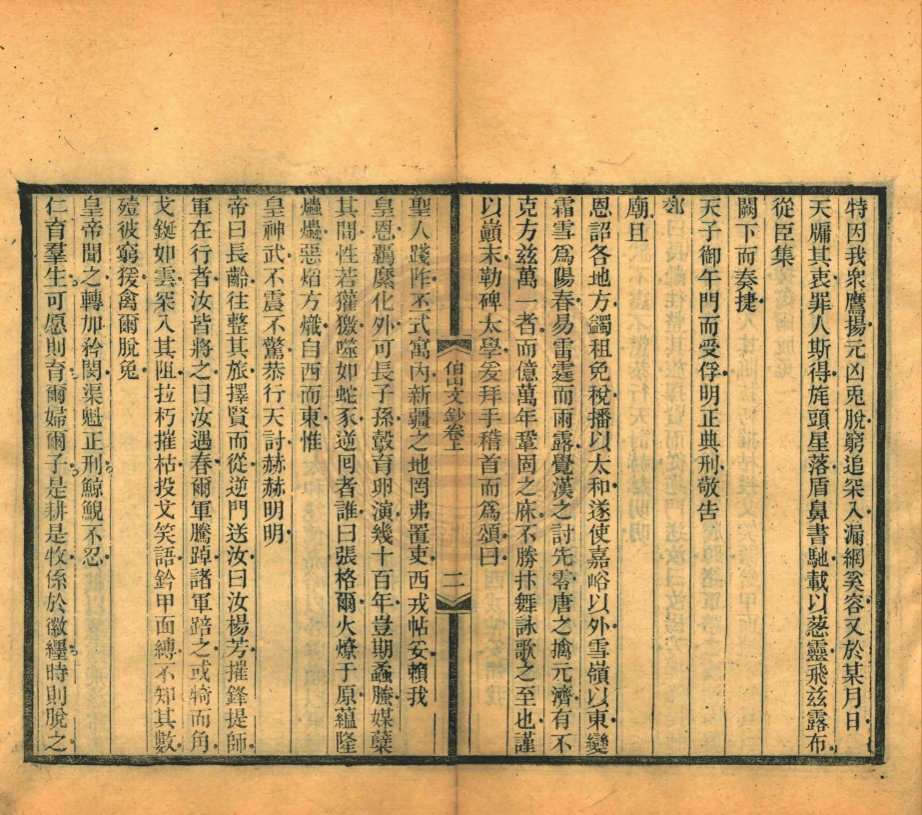 特因我衆鷹揚元凶兎脫窮追罙入漏網奚容又於某月日
天牖其衷罪人斯得旄頭星落盾鼻書馳載以蔥靈飛兹露布
從臣集
闕下而奏捷
天子御午門而受俘明正典刑敬告
郊
廟且
恩詔各地方蠲租免稅播以太和遂使嘉峪以外雪嶺以東變
霜雪爲陽春易雷霆而雨露覺漢之討先零唐之擒元濟有不
克方兹萬一者而億萬年鞏固之庥不勝抃舞詠歌之至也謹
以巔末勒碑太學爰拜手稽首而爲頌曰
伯山文鈔卷上
二
聖人踐阼丕式寓內新疆之地罔弗置吏西戎帖妥賴我
皇恩覊縻化外可長子孫㝅育卵演幾十百年豈期蟊螣媒櫱
其間性若獾獥噬如蛇豕逆回者誰曰張格爾火燎于原蘊隆
爞爞惡焰方熾自西而東惟
皇神武不震不驚恭行天討赫赫明明
帝曰長齡往整其旅擇賢而從逆門送汝曰汝楊芳摧鋒提師
軍在行者汝皆將之曰汝遇春爾軍騰踔諸軍踣之或犄而角
戈鋋如雲罙入其阻拉朽摧枯投戈笑語鈐甲面縛不知其數
殪彼窮猨禽爾脫兔
皇帝聞之轉加矜閔渠魁正刑鯨鯢不忍
仁育羣生可愿則育爾婦爾子是耕是牧係於徽纆時則脫之